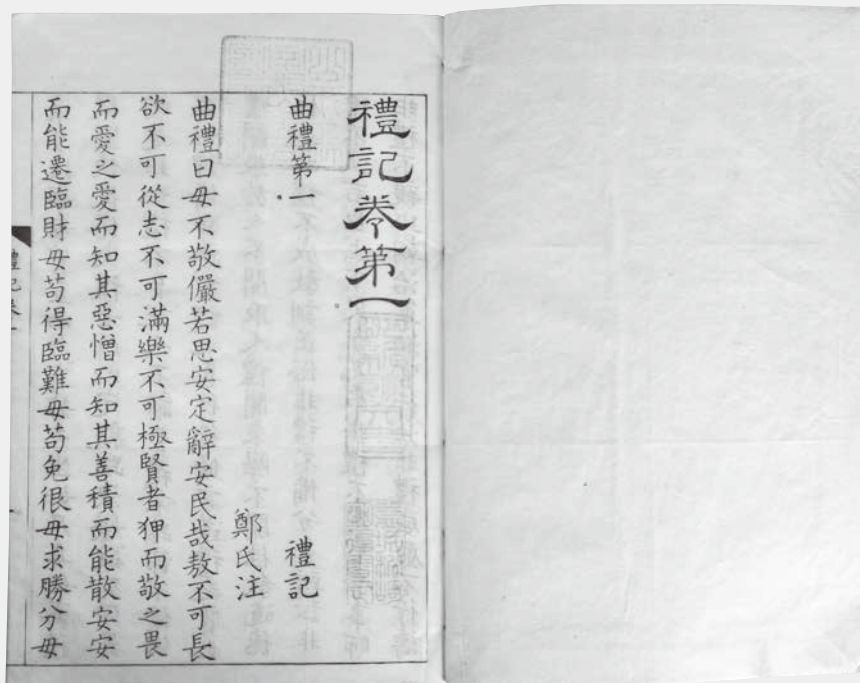 禮記卷第一
曲禮第一
禮記
鄭氏注
曲禮曰毋不敬儼若思安定辭安民哉敖不可長
欲不可從志不可滿樂不可極賢者狎而敬之畏
而愛之愛而知其惡憎而知其善積而能散安安
而能遷臨財毋苟得臨難毋苟免很毋求勝分毋
禮記卷一